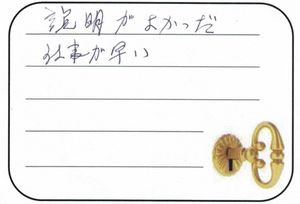 説明がよかっだ
仕事が早い